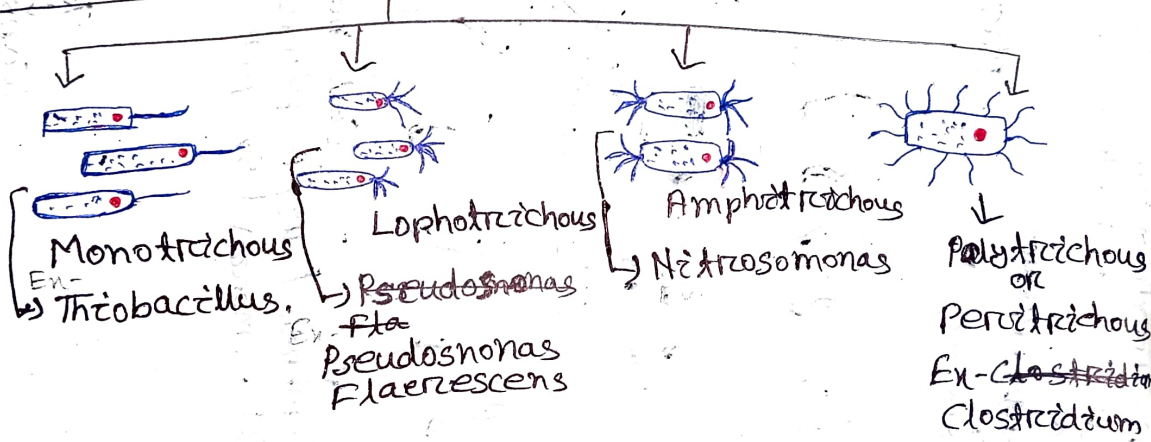 Monotrichous
Ex-
Thiobacillus.
Lophotrichous
Pseudosmonas
Fla
Ex-
Pseudosmonas
Flaerescens
Amphitrichous
Nitrosomonas
Polytrichous
or
Peritrichous
Ex-Clostridium
Clostridium